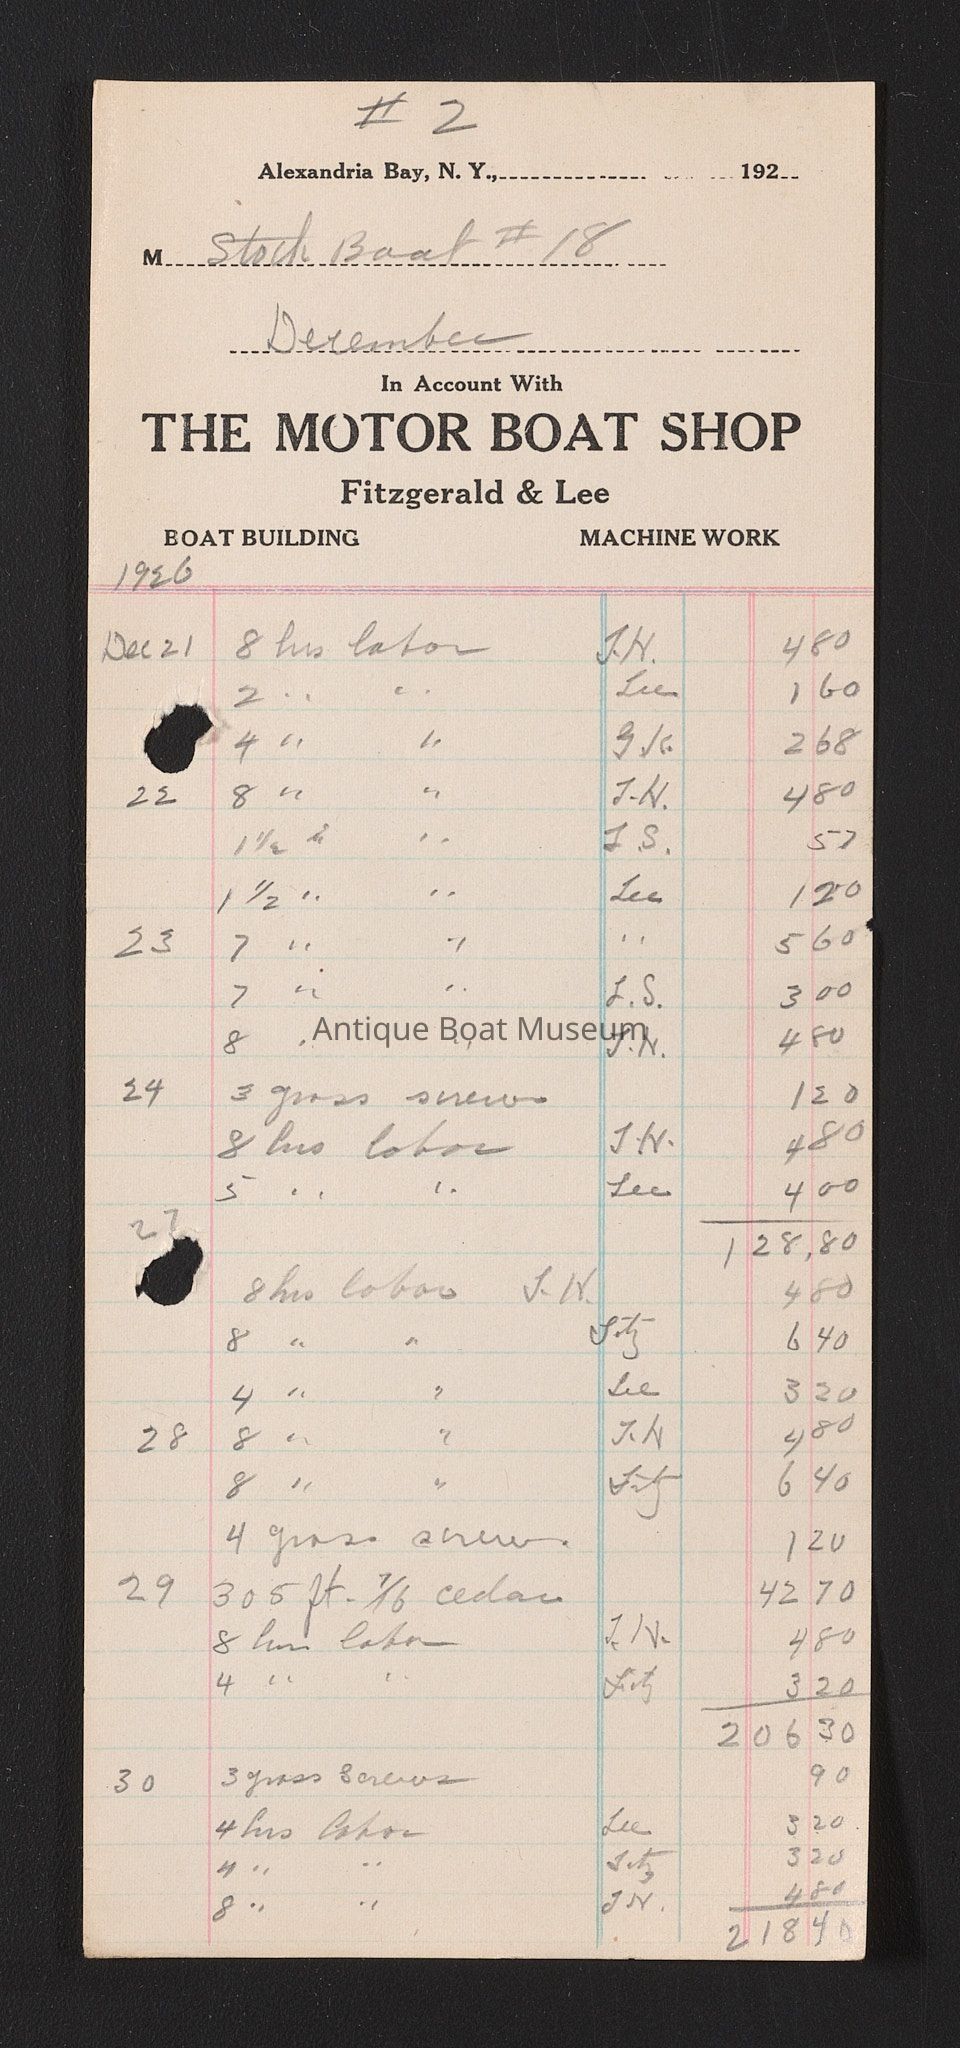 # 2
Alexandria Bay, N. Y., 192
M Stock Boat # 18
December
In Account With
THE MOTOR BOAT SHOP
Fitzgerald & Lee
BOAT BUILDING MACHINE WORK
1926
Dec 21 8 hrs labor J.H. 4 80
2 " " Lee 1 60
4 " " G.K. 2 68
22 8 " " J.H. 4 80
1 1/2 " " J.S. 57
1 1/2 " " Lee 1 20
23 7 " " " 5 60
7 " " J.S. 3 00
8 " " J.H. 4 80
Antique Boat Museum
24 3 gross screws 1 20
8 hrs labor J.H. 4 80
5 " " Lee 4 00
27
128,80
8 hrs labor J.H. 4 80
8 " " Fitz 6 40
4 " " Lee 3 20
28 8 " " J.H 4 80
8 " " Fitz 6 40
4 gross screws 1 20
29 305 ft. 7/16 cedar 42 70
8 hrs labor J.H. 4 80
4 " " Fitz 3 20
206 30
30 3 gross screws 90
4 hrs labor Lee 3 20
4 " " Fitz 3 20
8 " " J.H. 4 80
218 40